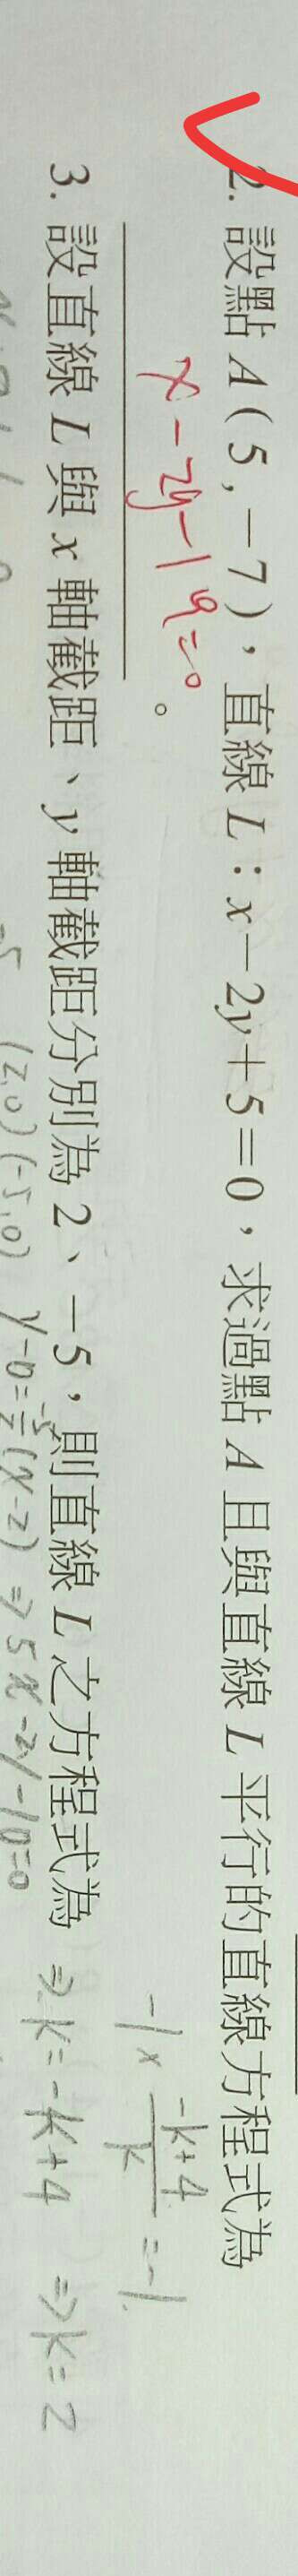 2. 設點 A(5,－7)，直線 L：x－2y＋5＝0，求過點 A 且與直線 L 平行的直線方程式為
x－2y－19＝0。
-1×\frac{-k+4}{k}=-1.
3. 設直線 L 與 x 軸截距、y 軸截距分別為 2、－5，則直線 L 之方程式為
⇒k=-k+4 ⇒k=2
(2,0) (-5,0) y-0=\frac{-5}{2}(x-2) ⇒5x-2y-10=0